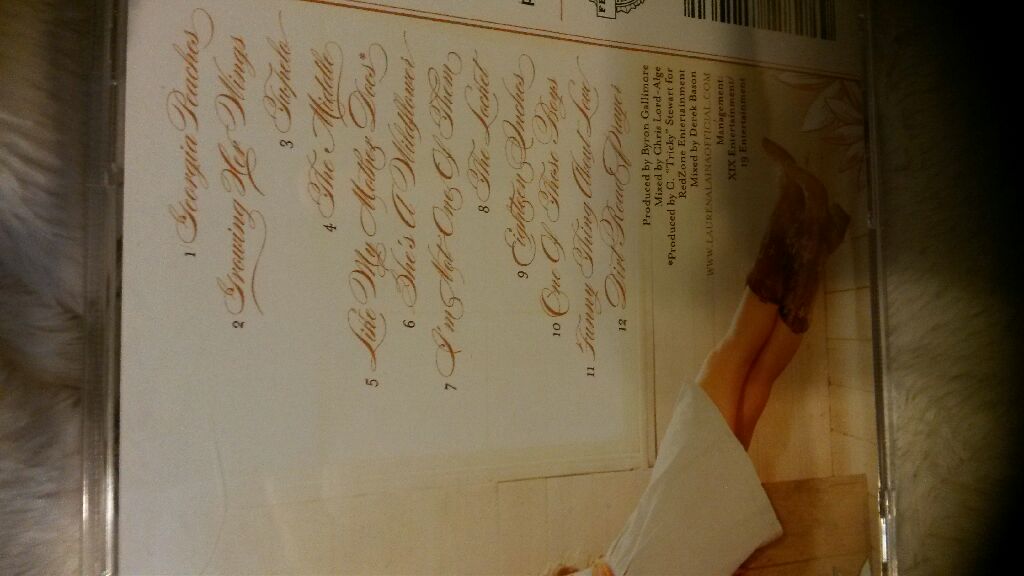 1 Georgia Peaches
2 Growing Her Wings
3 Tupelo
4 The Middle
5 Like My Mother Does*
6 She's A Wildflower
7 I'm Not One Of Them
8 The Locket
9 Eighteen Inches
10 One Of Those Boys
11 Funny Thing About Love
12 Dirt Road Prayer
Produced by Byron Gallimore
Mixed by Chris Lord-Alge
*Produced by C. "Tricky" Stewart for
RedZone Entertainment
Mixed by Derek Bason
WWW.LAURENALAINAOFFICIAL.COM
Management:
XIX Entertainment/
19 Entertainment